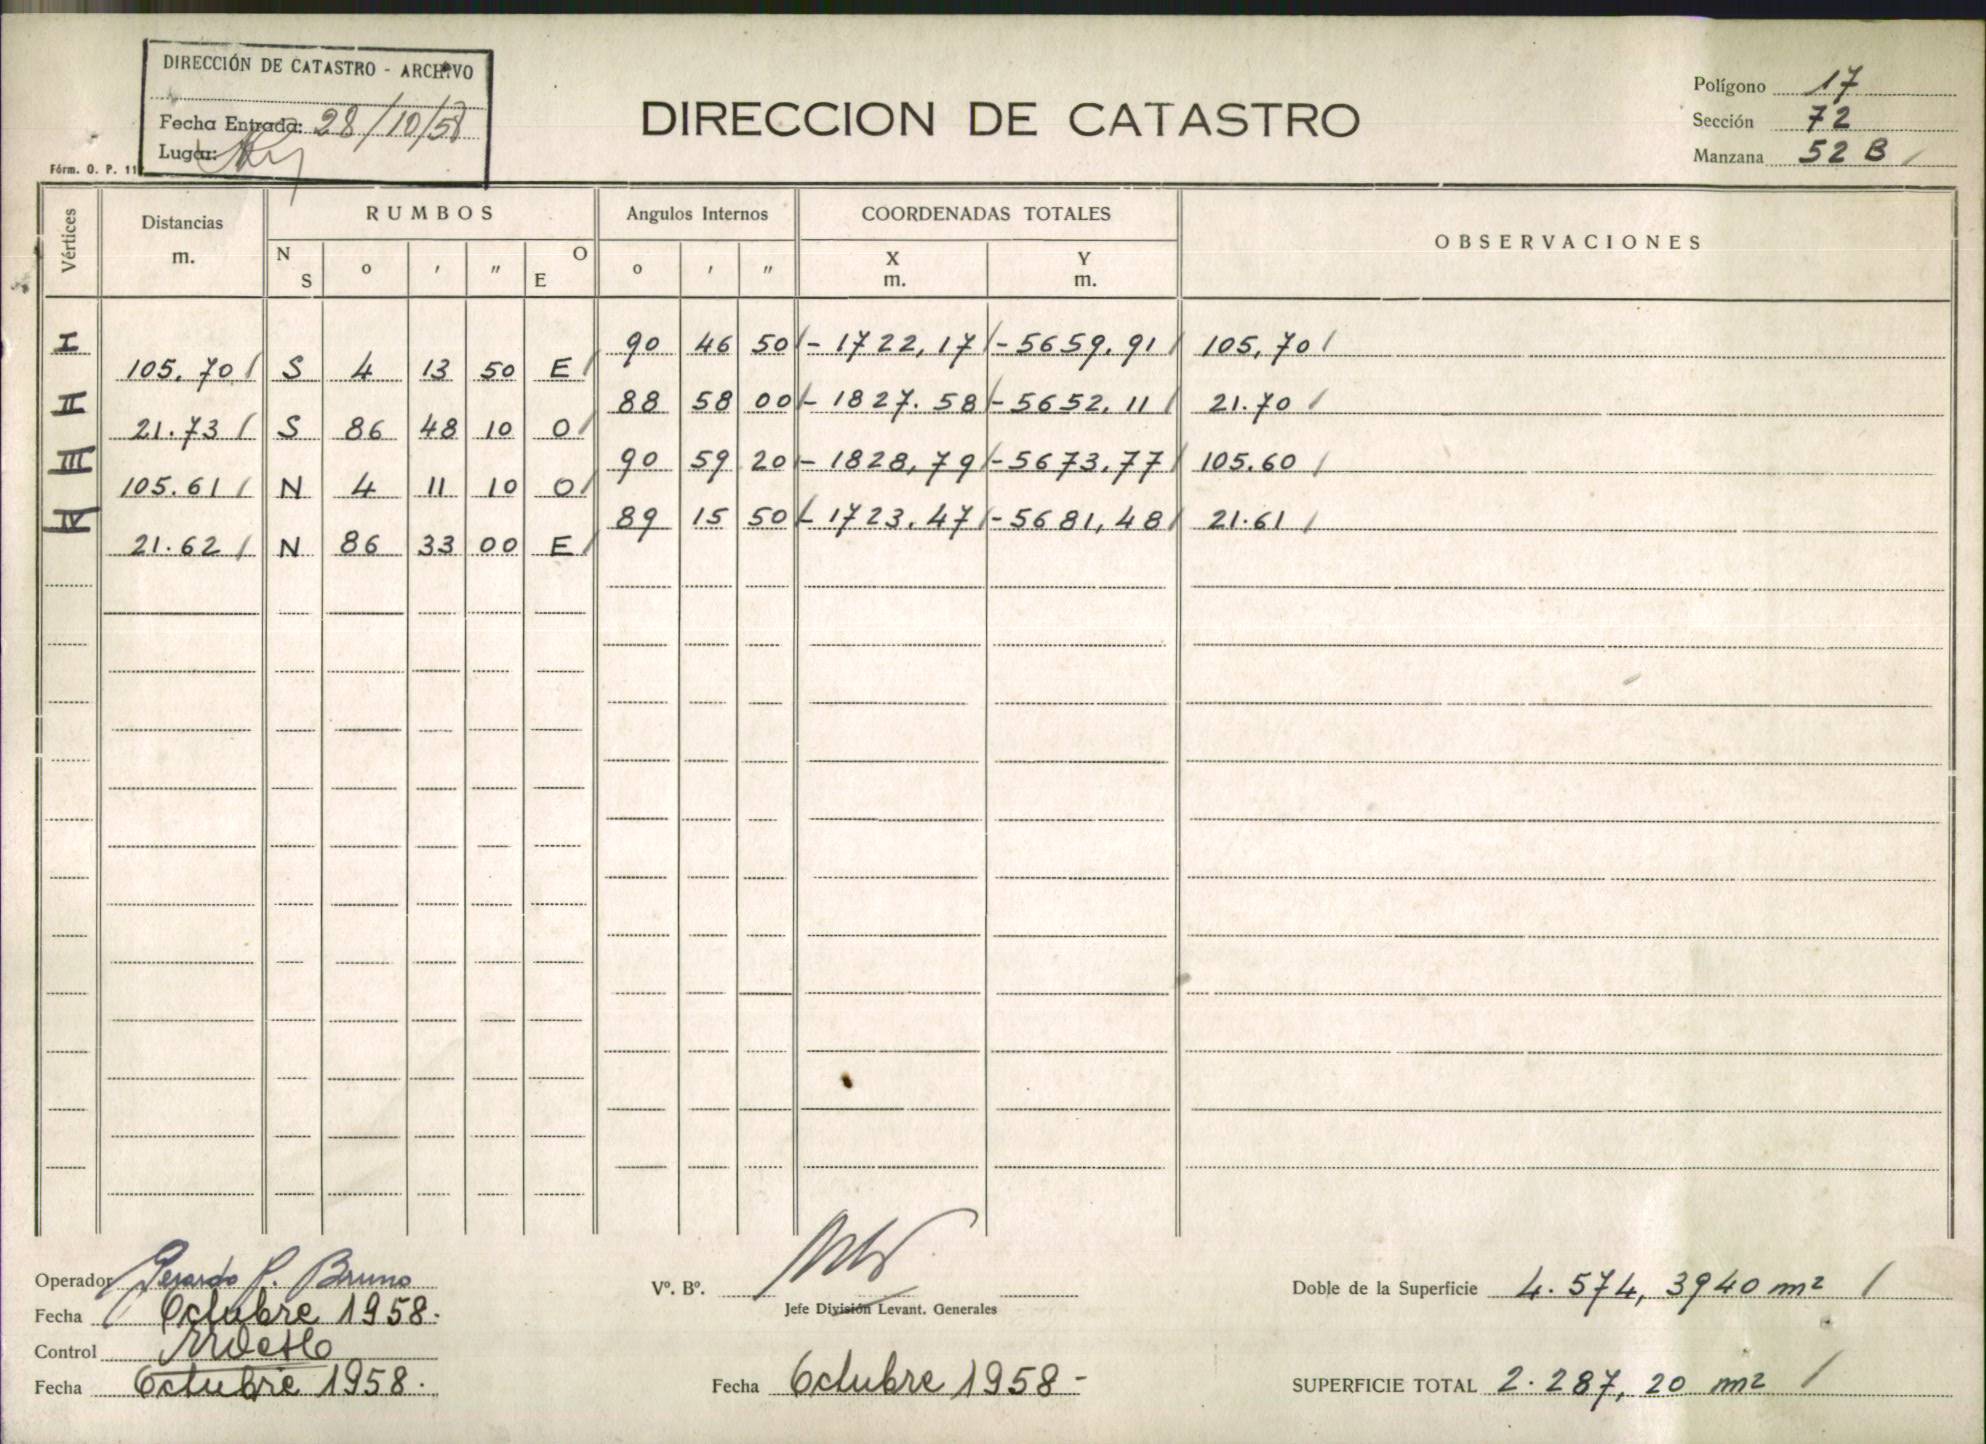 DIRECCIÓN DE CATASTRO - ARCHIVO
Fecha Entrada: 28/10/58
Lugar:
Fórm. O. P. 11
DIRECCION DE CATASTRO
Polígono 17
Sección 72
Manzana 52 B /
Vértices Distancias m. RUMBOS Angulos Internos COORDENADAS TOTALES OBSERVACIONES
N S o ′ ″ O E o ′ ″ X m. Y m.
I 90 46 50 / - 1722,17 / - 5659,91 / 105,70 /
105.70 / S 4 13 50 E /
II 88 58 00 / - 1827.58 / - 5652,11 / 21.70 /
21.73 / S 86 48 10 O /
III 90 59 20 - 1828,79 / - 5673,77 / 105.60 /
105.61 / N 4 11 10 O /
IV 89 15 50 / - 1723.47 / - 5681,48 / 21.61 /
21.62 / N 86 33 00 E /
Operador Gerardo P. Bruno
Fecha Octubre 1958.
Control
Fecha Octubre 1958.
Vº. Bº.
Jefe División Levant. Generales
Fecha Octubre 1958 -
Doble de la Superficie 4.574,3940 m² /
SUPERFICIE TOTAL 2.287,20 m² /